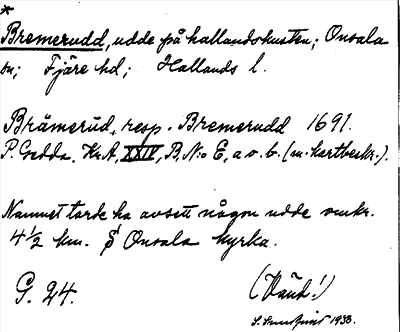 *
Bremerudd, udde på hallandskusten; Onsala
sn; Fjäre hd; Hallands l.
Brämerud, resp. Bremerudd 1691.
P. Gedda. Kr.A, XXIV, B, N:o E, a o. b. (m. kartbeskr.).
Namnet torde ha avsett någon udde omkr.
4 1/2 km. S Onsala kyrka.
G. 24.
S. 1933.